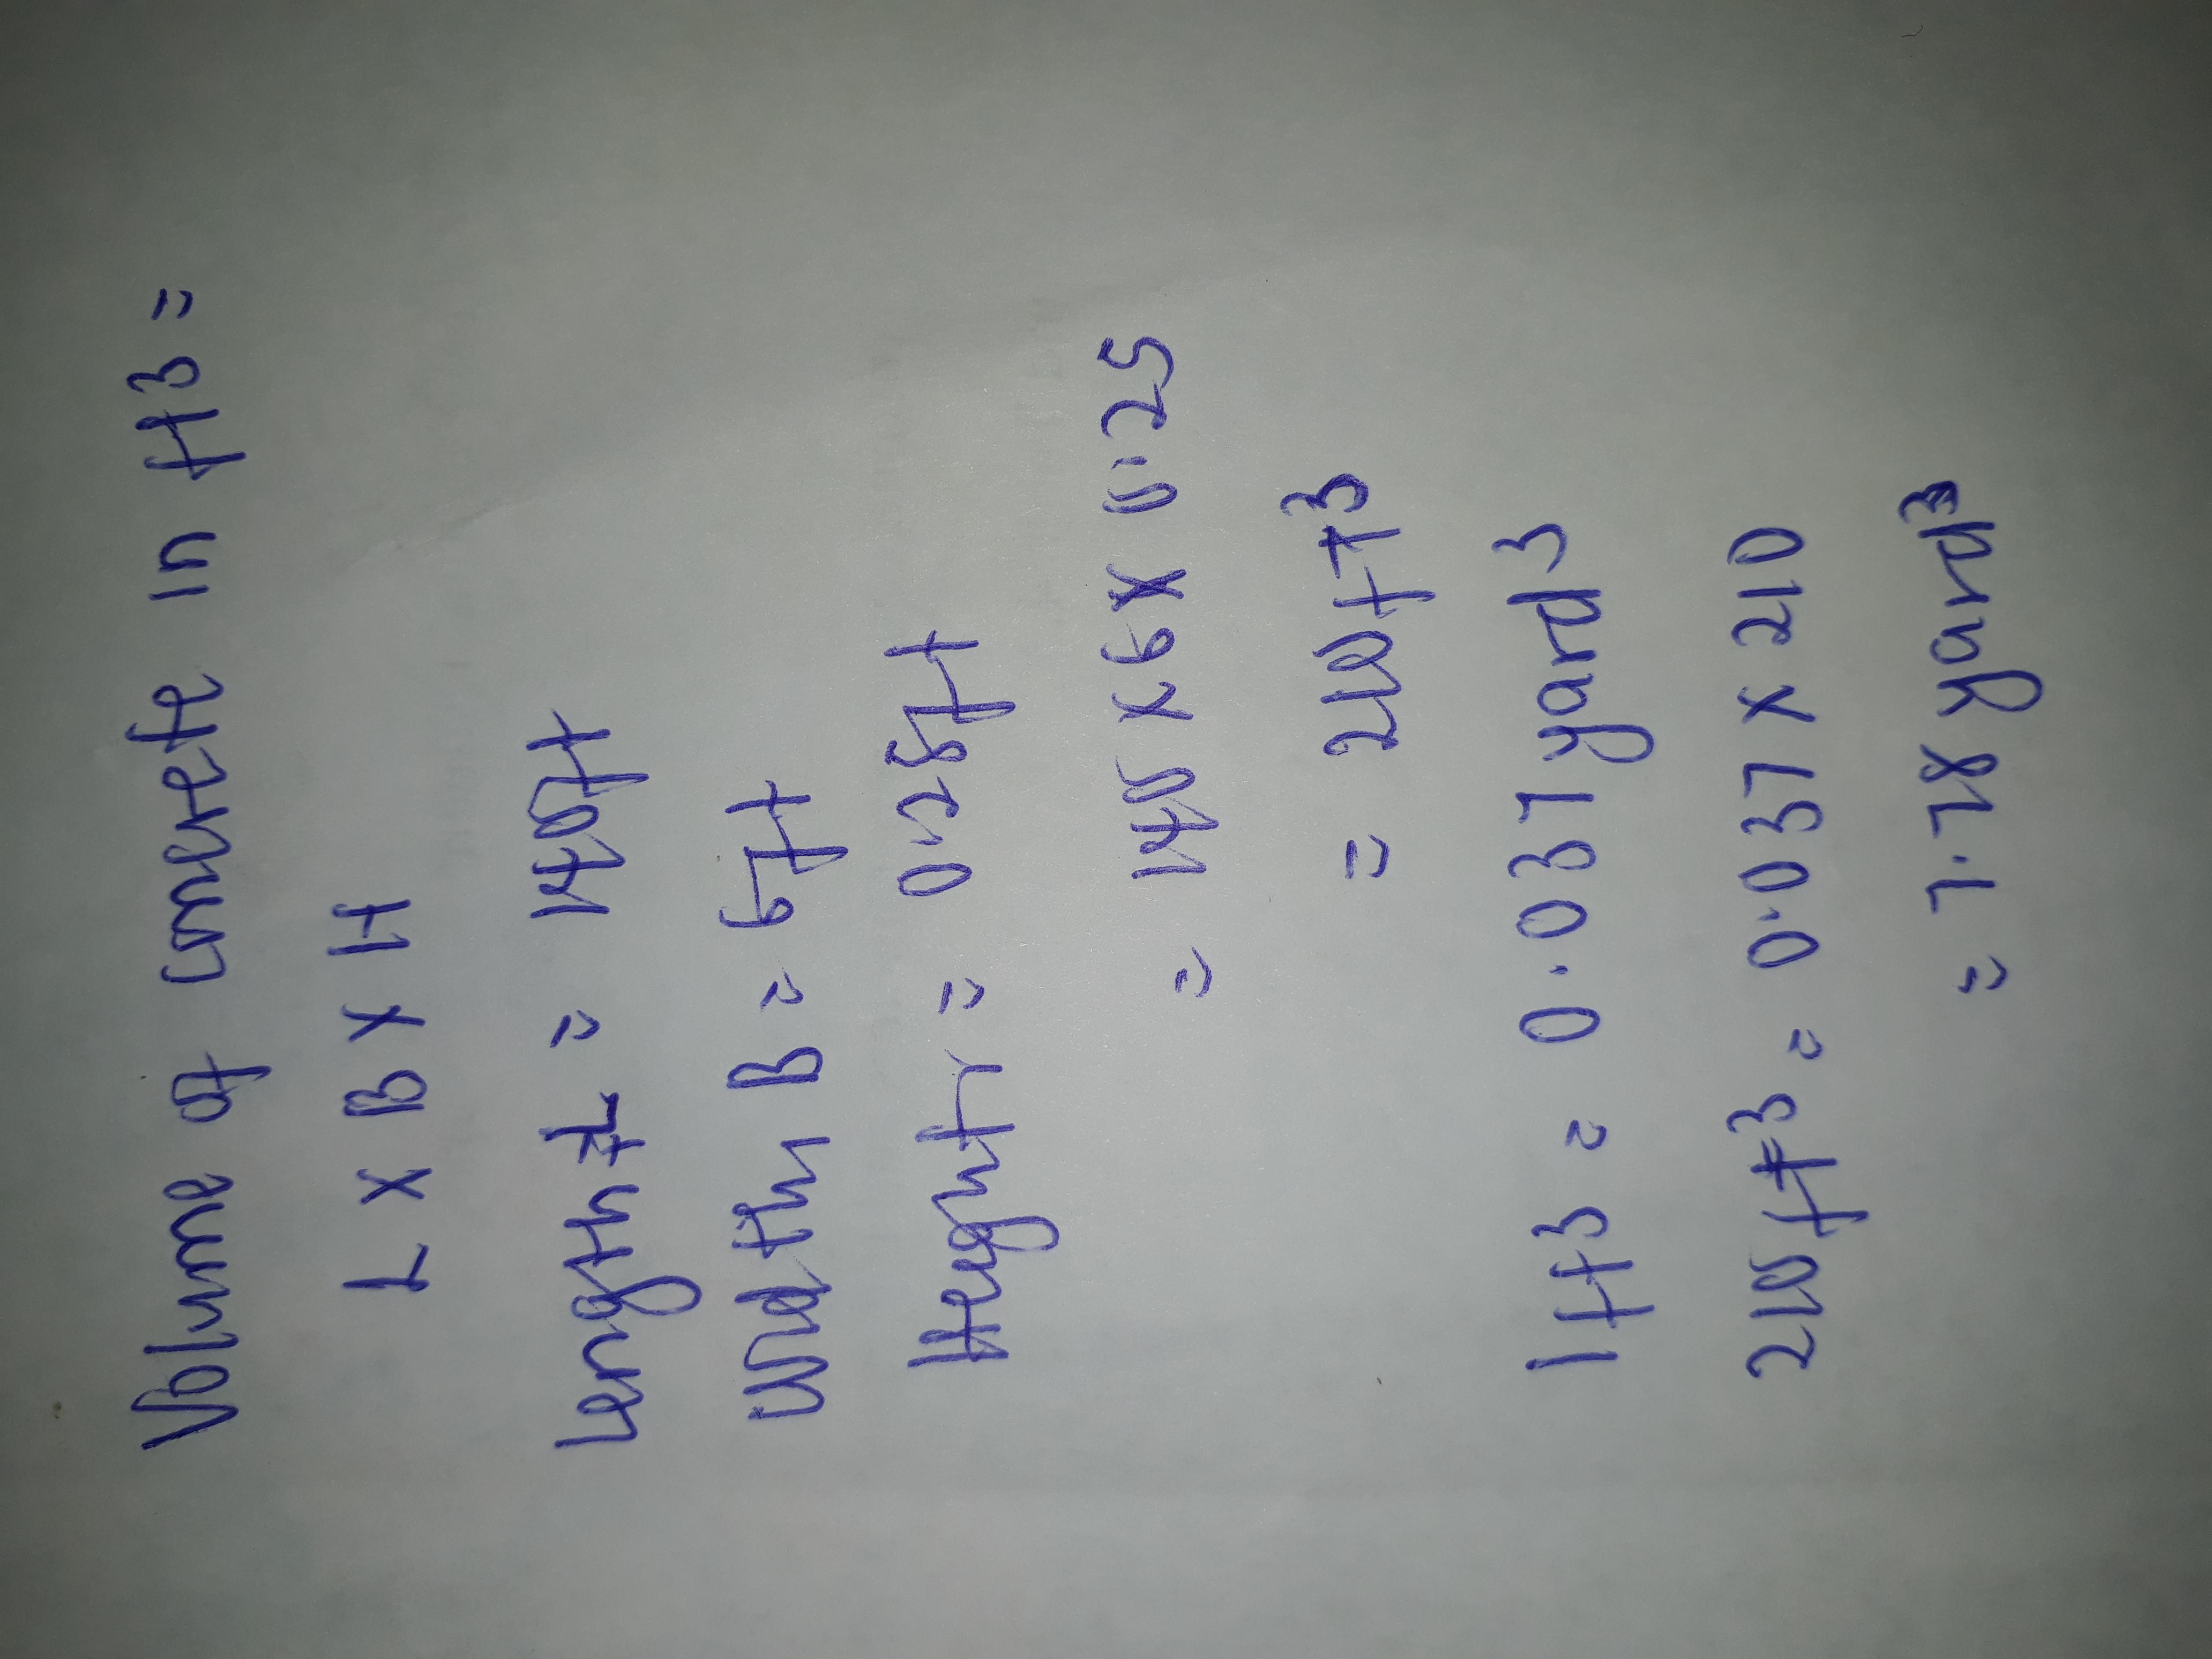 Volume of concrete in ft3 =
L x B x H
Length L = 140ft
Width B = 6ft
Height = 0.25ft
= 140 x 6 x 0.25
= 210ft3
1ft3 = 0.037yard3
210ft3 = 0.037 x 210
= 7.78 yard3